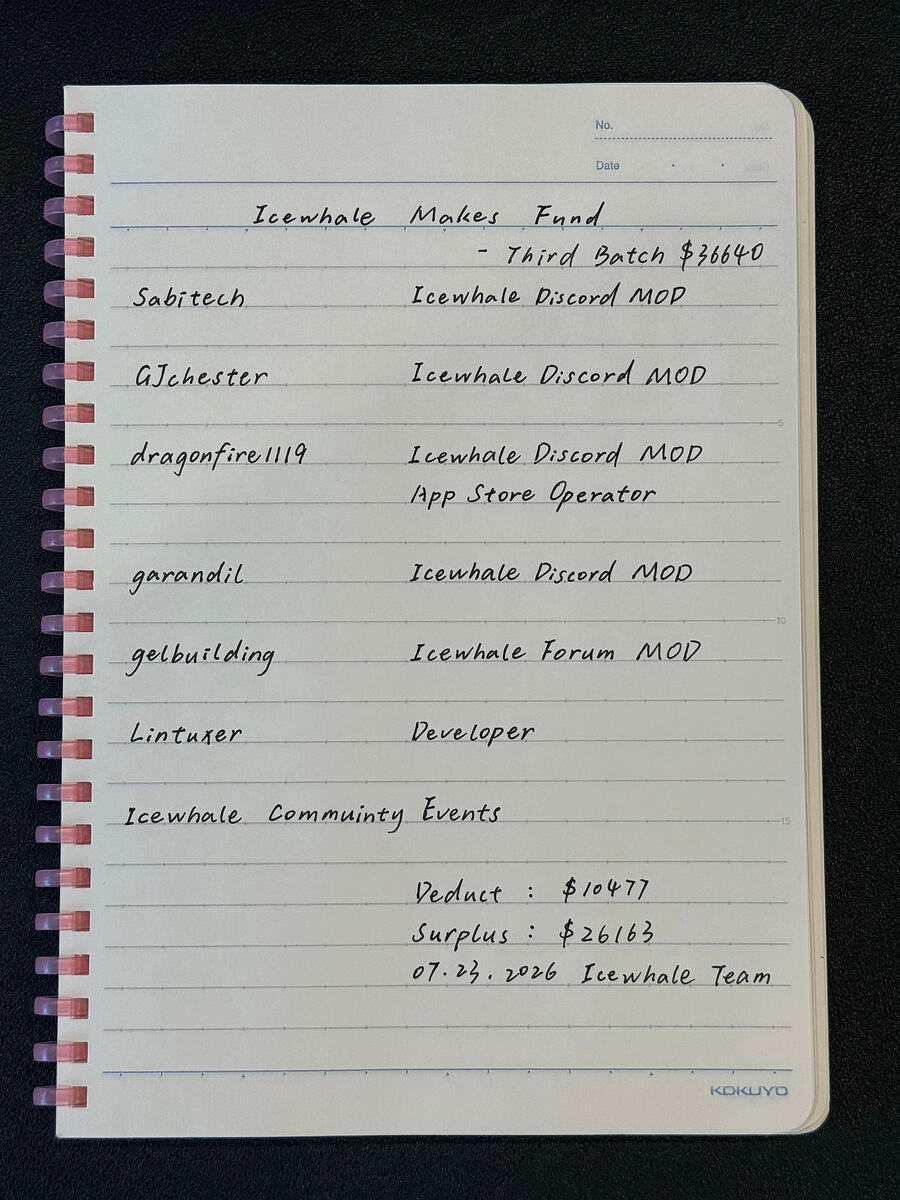 No.
Date
Icewhale Makes Fund
- Third Batch $36640
Sabitech Icewhale Discord MOD
GJchester Icewhale Discord MOD
5
dragonfire1119 Icewhale Discord MOD
App Store Operator
garandil Icewhale Discord MOD
10
gelbuilding Icewhale Forum MOD
Lintuxer Developer
Icewhale Commuinty Events
15
Deduct : $10477
Surplus : $26163
07.23.2026 Icewhale Team
KOKUYO